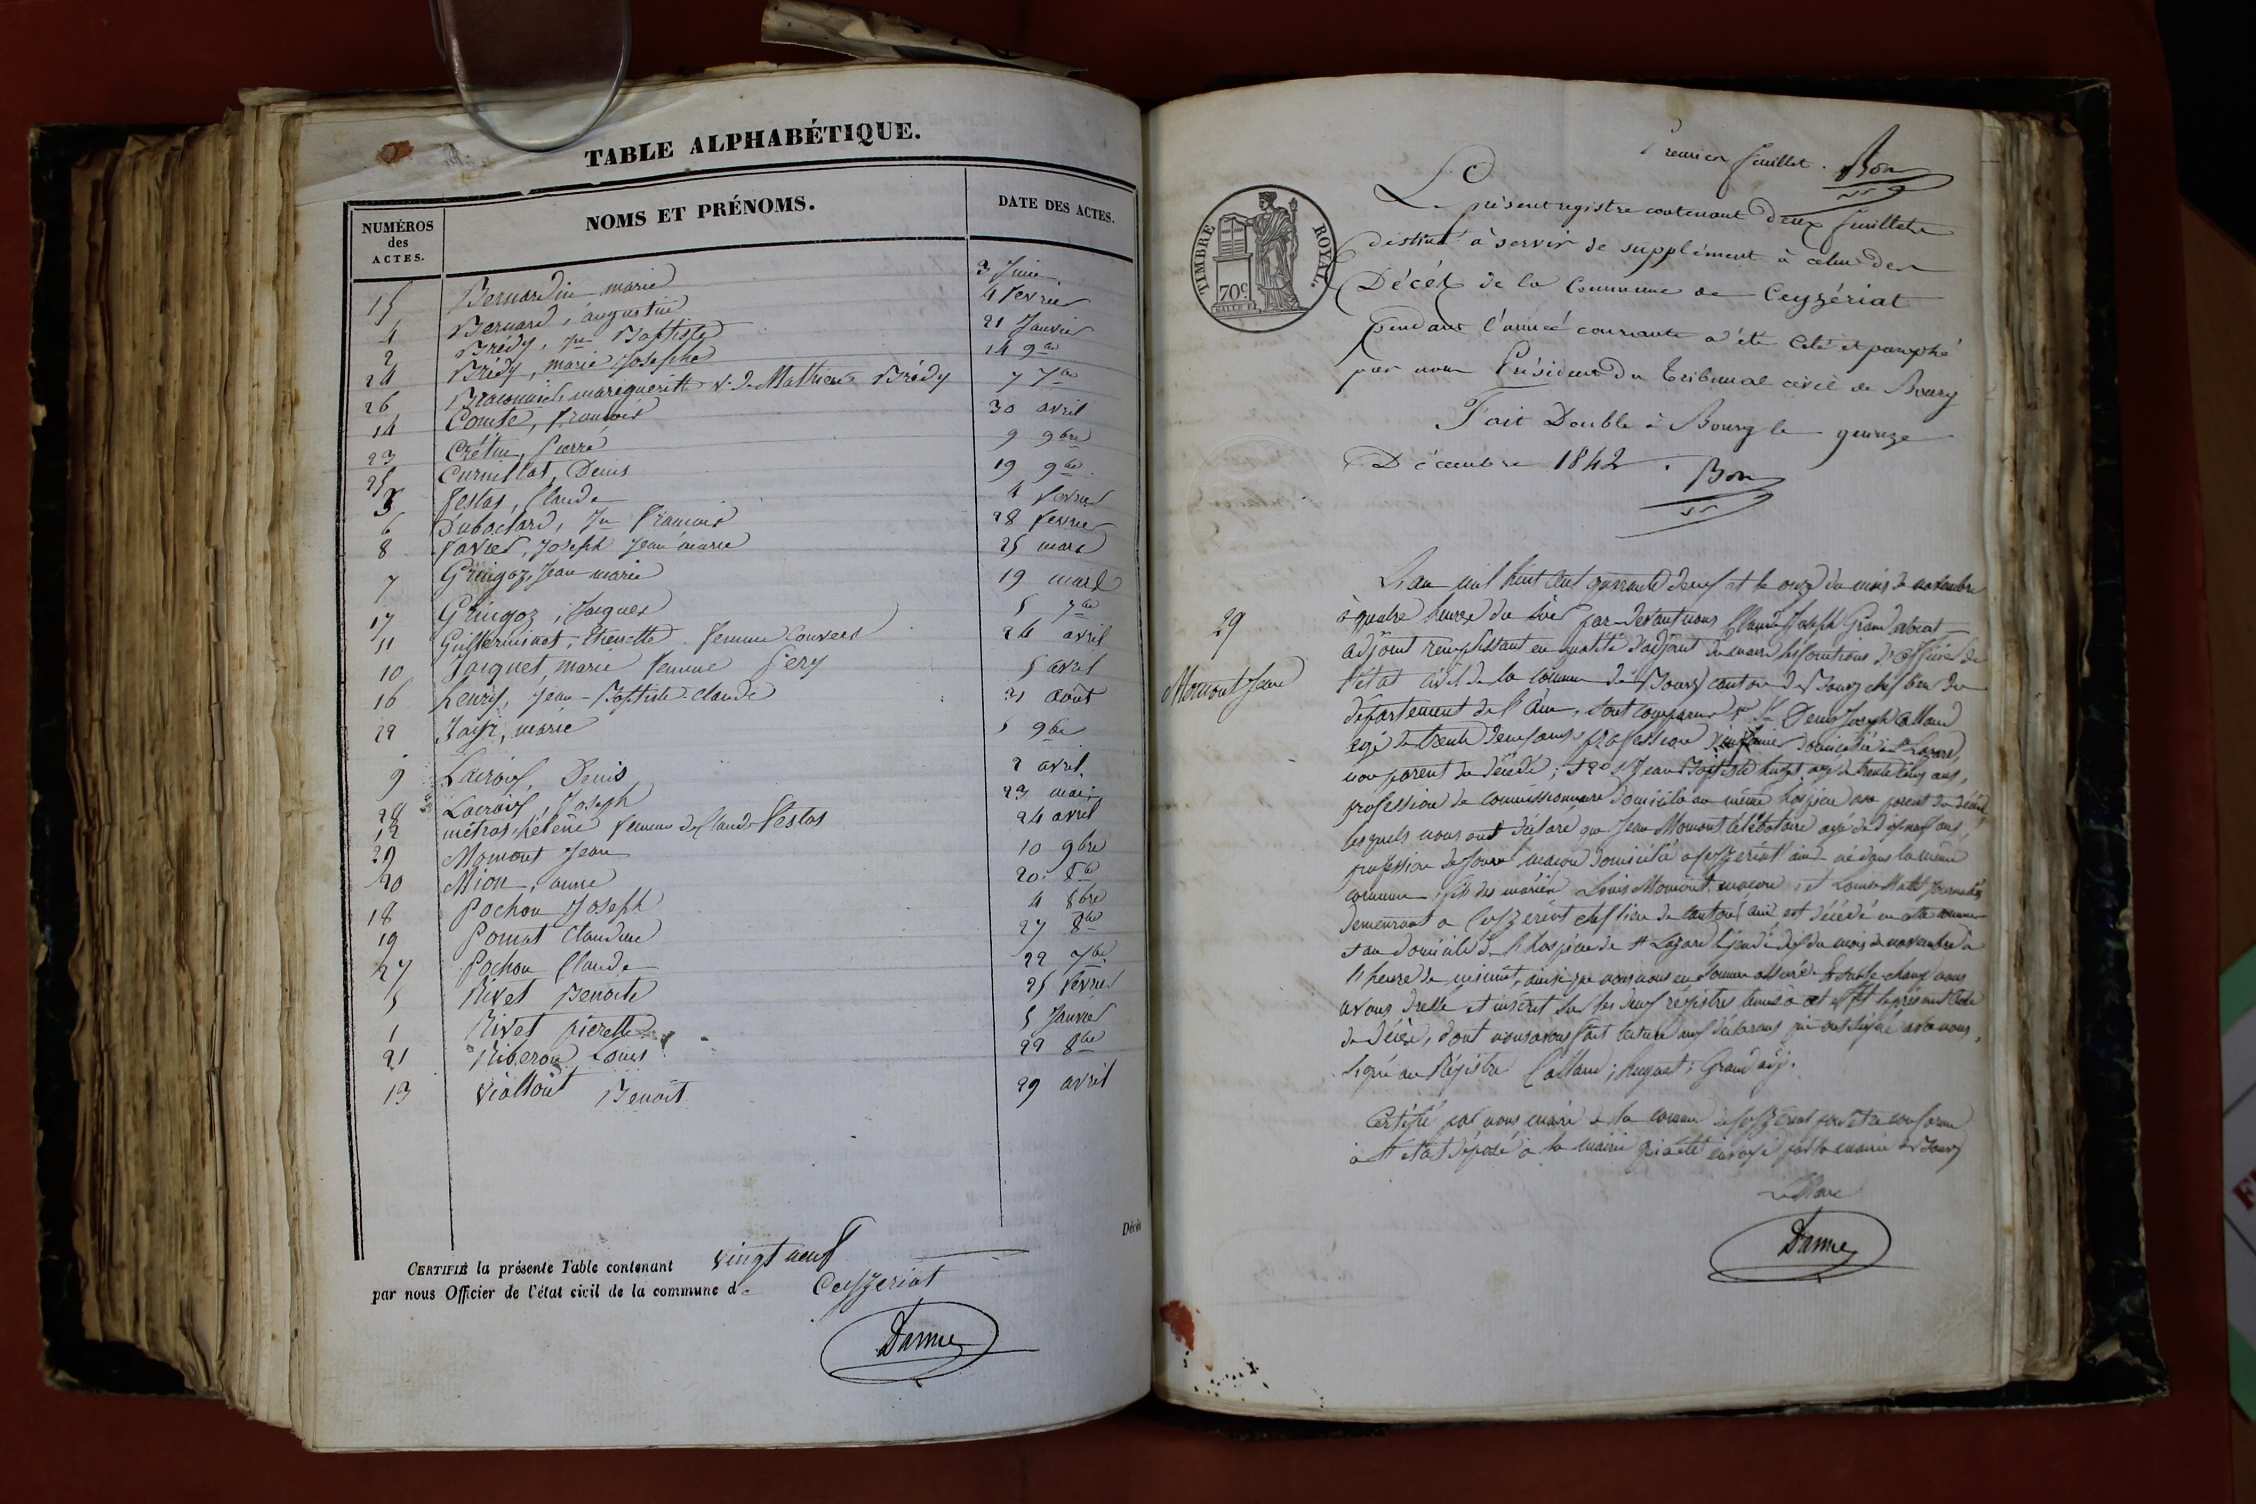 TABLE ALPHABÉTIQUE.
NUMÉROS des ACTES.
NOMS ET PRÉNOMS.
DATE DES ACTES.
15 Bernardin marie 3 Juin
4 Bernard, augustin 4 fevrier
2 Brédy, Jn Baptiste 21 Janvier
24 Brédy, marie Josephe 14 9bre
26 marguerite v. de Mathieu Brédy 7 7bre
14 Comte, françois 30 avril
23 Crétin, Pierre 9 9bre
25 Curnillat, Denis 19 9bre
3 festas, Claude 4 fevrier
6 Duboclard, Jn françois 28 fevrier
8 favier, Joseph Jean marie 25 mars
7 Gringoz, Jean marie 19 mars
17 Gringoz, Jacques 5 7bre
11 Guillerminet, Etiennette femme Convers 24 avril
10 Jacquet, marie femme Pery 5 avril
16 henry, Jean-Baptiste Claude 31 août
22 marie 5 9bre
9 Lacroix, Denis 2 avril
28 Lacroix, Joseph 23 mai
12 métras hélène femme de Claude festas 24 avril
29 Momont Jean 10 9bre
20 Mion, anne 20 8bre
18 Pochon Joseph 4 8bre
19 Pomat Claudine 27 8bre
27 Pochon Claude 22 7bre
5 Rivet Benoite 25 fevrier
1 Rivet pierrette 5 Janvier
21 Louis 22 8bre
13 Viallout Benoit 29 avril
Décès
CERTIFIÉ la présente Table contenant vingt neuf
par nous Officier de l'état civil de la commune d Ceyzeriat
Damne
Premier feuillet. Bon
TIMBRE ROYAL
70c
Le présent registre contenant deux feuillets
destiné à servir de supplément à celui des
Décès de la Commune de Ceyzériat
pendant l'année courante a été coté et paraphé
par nous Président du Tribunal civil de Bourg
Fait Double à Bourg le quinze
Décembre 1842. Bon
29
Momont Jean
L'an mil huit cent quarante deux et le onze du mois de novembre
à quatre heures du soir par devant nous Claude Joseph Grand avocat
adjoint remplissant en qualité d'adjoint du maire les fonctions d'officier de
l'état civil de la commune de Bourg canton de Bourg chef lieu du
département de l'ain, sont comparus Denis Joseph Calland
agé de trente deux ans profession d'infirmier domicilié à St Lazare,
non parent du décédé; Jean Baptiste huget agé de trente cinq ans,
profession de commissionnaire domicilié au même hospice non parent du décédé
lesquels nous ont déclaré que Jean Momont célibataire agé de dix neuf ans,
profession de maçon domicilié à Ceyzeriat ain né dans la même
commune, fils des mariés Louis Momont maçon, et Louise
demeurant à Ceyzeriat chef lieu de canton ain est décédé en cette commune
au domicile de l'hospice de St Lazare le jeudi dix du mois de novembre à
heure de minuit, ainsi que nous nous en sommes assuré
avons dressé et inscrit sur les deux registres tenus à cet effet le présent acte
de décès, dont nous avons fait lecture aux déclarans qui ont signé avec nous.
Signé au Régistre Calland; huguet; Grand adj.
Certifié par nous maire de la commune de Ceyzeriat conforme
à déposé à la mairie qui a été envoyé par la mairie de Bourg
Le Maire
Damne